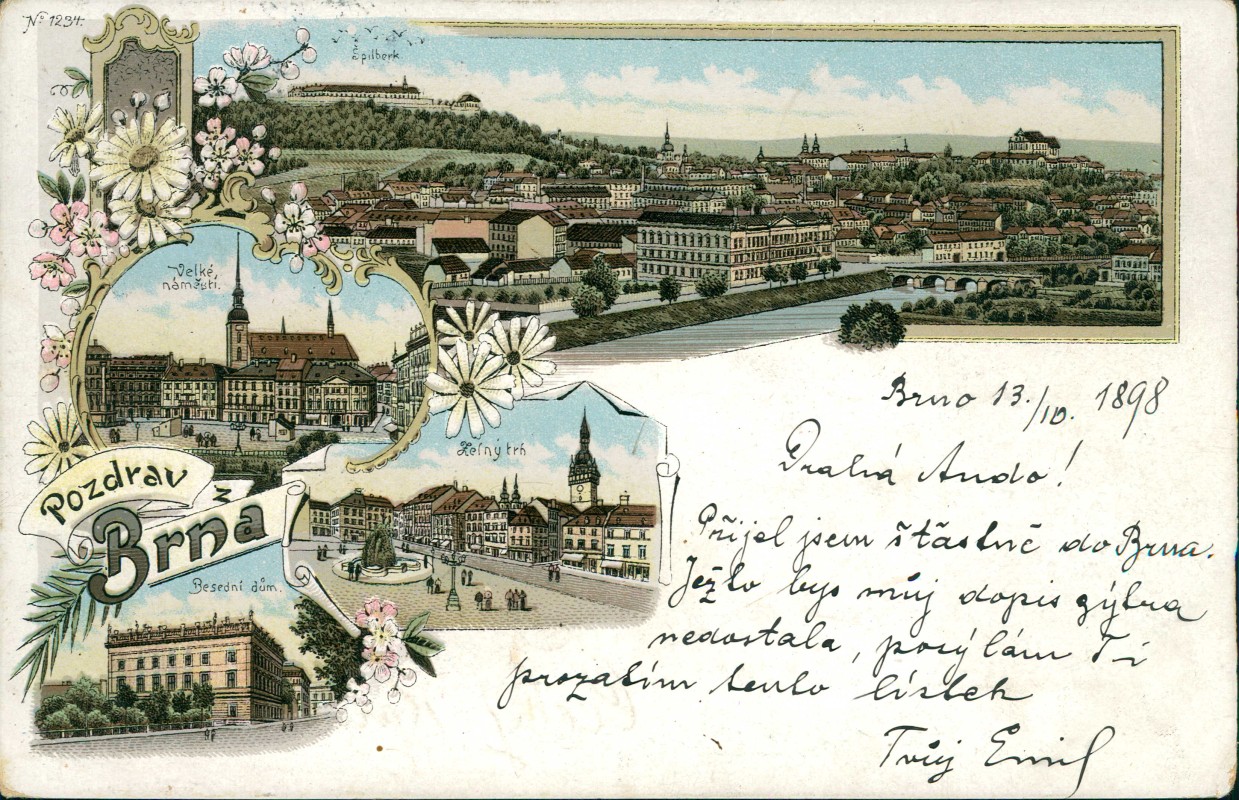 No 1234.
Špilberk
Velké
náměstí.
Zelný trh
Pozdrav
z
Brna
Besední dům.
Brno 13./10. 1898
Drahá Ando!
Přijel jsem šťastně do Brna.
Ježto bys můj dopis zýtra
nedostala, posýlám Ti
prozatím tento lístek
Tvůj Emil